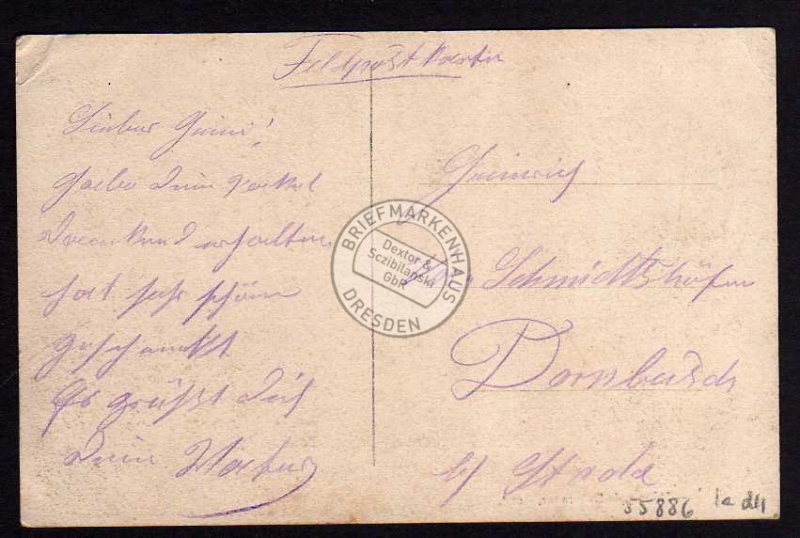 Feldpostkarte
Lieber Heini!
Habe Dein Packet
Dankend erhalten
hat sehr schön
geschmeckt
Es grüßt Dich
Dein Vater
Heinrich
Schmidt
Dornbusch
b/ Stade
BRIEFMARKENHAUS
Dextor &
Sczibilanski
GbR
DRESDEN
55886 1a d4